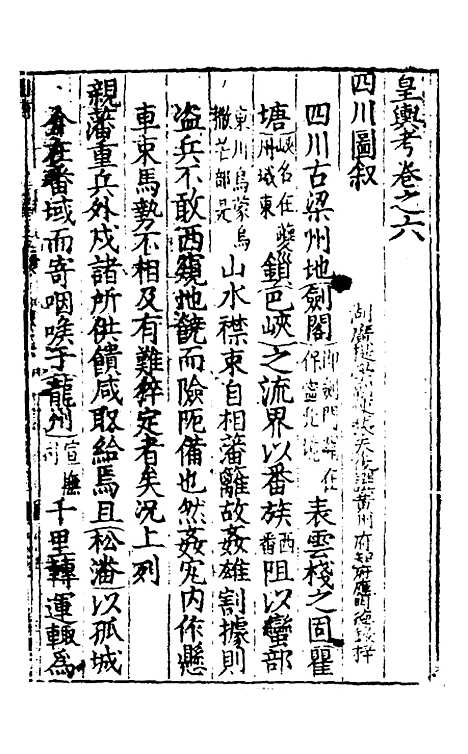 皇輿考卷之六
四川圖叙
四川古梁州地劍閣即劍門關在保寧北境表雲棧之固瞿
塘峽名在夔州城東鎖巴峽之流界以番族西番阻以蠻部
東川烏蒙烏撒芒部是山水襟束自相藩籬故姦雄割據則
盗兵不敢西窺地饒而險阨備也然姦宄内作懸
車束馬勢不相及有難猝定者矣况上列
親藩重兵外戍諸所供饋咸取給焉且松潘以孤城
介在番域而寄咽喉于龍州宣撫司千里轉運輙為